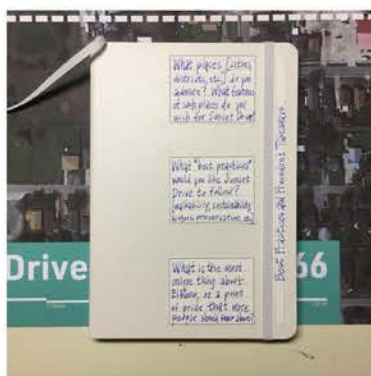 What places [cities,
districts, etc.] do you
admire? What features
of such places do you
wish for Sunset Drive?
What "best practices"
would you like Sunset
Drive to follow?
[walkability, sustainability,
historic preservation, etc.]
What is the most
unique thing about
or a point
of pride that more
people should know about?
Best Practices and Precedent
Drive
66